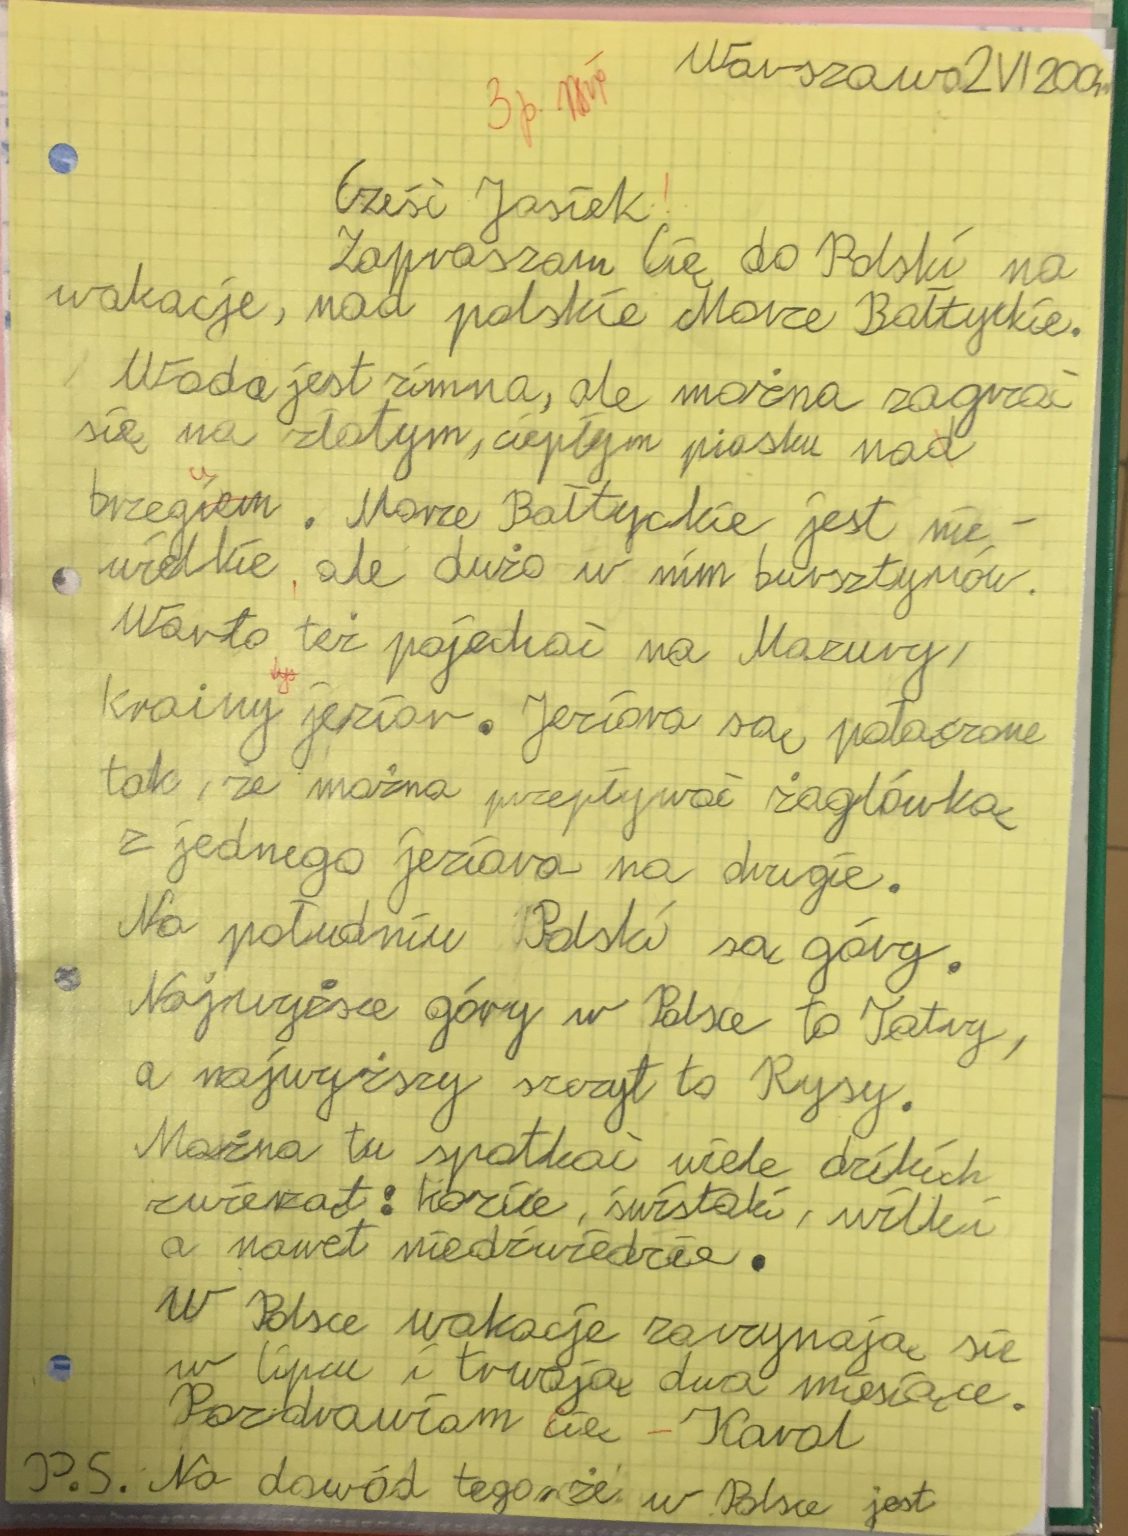 Warszawa 2 VI 200
3p.
Cześć Jasiek!
Zapraszam Cię do Polski na
wakacje, nad polskie Morze Bałtyckie.
Woda jest zimna, ale można zagrzać
się na złotym, ciepłym piasku nad
brzegiem. Morze Bałtyckie jest nie-
wielkie, ale dużo w nim bursztynów.
Warto też pojechać na Mazury,
krainy jezior. Jeziora są połaczone
tak, że można przepływać żaglówką
z jednego jeziora na drugie.
Na południu Polski są góry.
Najwyższe góry w Polsce to Tatry,
a najwyższy szczyt to Rysy.
Można tu spotkać wiele dzikich
zwierzat: kozice, świstaki, wilki
a nawet niedźwiedzie.
W Polsce wakacje zaczynają się
w lipcu i trwają dwa miesiące.
Pozdrawiam cię - Karol
P.S. Na dowód tego, że w Polsce jest